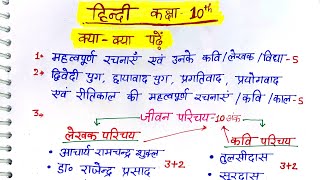 हिन्दी कक्षा 10th
क्या-क्या पढ़ें
1* महत्वपूर्ण रचनाएं एवं उनके कवि/लेखक/विद्या-5
2* द्विवेदी युग, छायावाद युग, प्रगतिवाद, प्रयोगवाद
एवं रीतिकाल की महत्वपूर्ण रचनाएं/कवि/काल-5
3* जीवन परिचय-10 अंक
लेखक परिचय कवि परिचय
• आचार्य रामचन्द्र शुक्ल • तुलसीदास
• डा० राजेन्द्र प्रसाद 3+2 • सूरदास 3+2